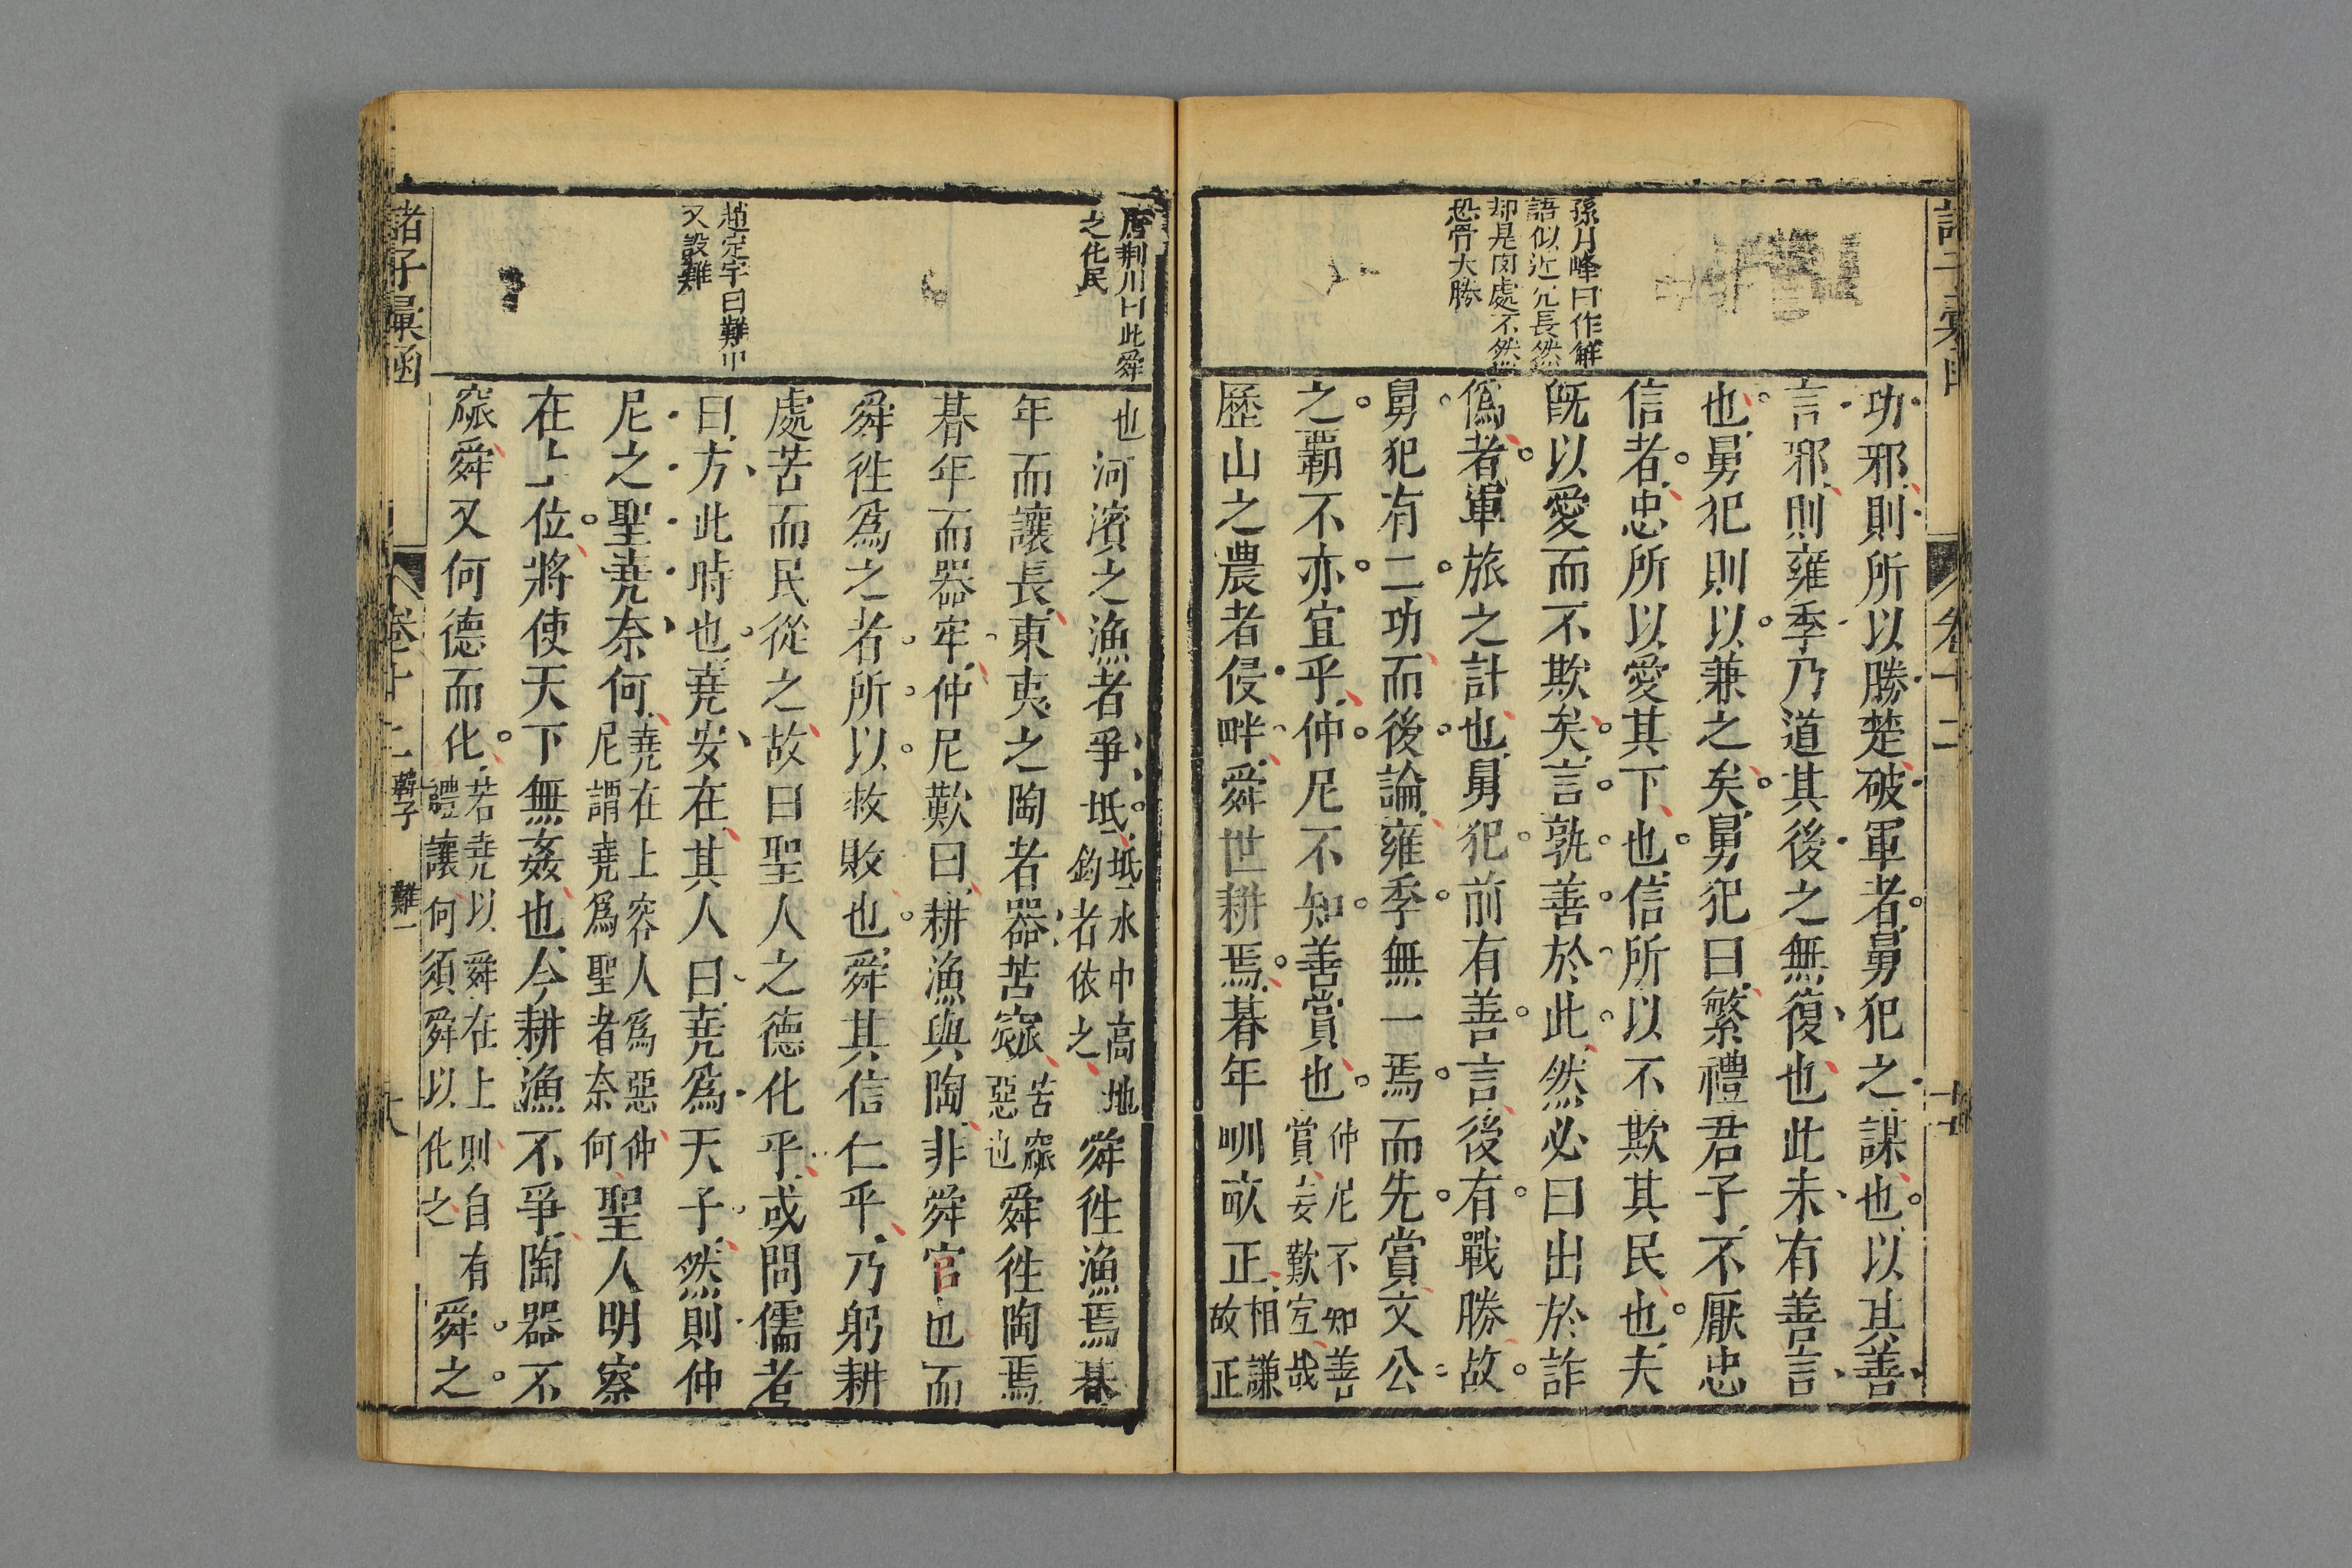 孫月峰曰作解
語似近冗長然
却是国處不然
恐骨大勝
功邪則所以勝楚破軍者舅犯之謀也以其善
言邪則雍季乃道其後之無復也此未有善言
也舅犯則以兼之矣舅犯曰繁禮君子不厭忠
信者忠所以愛其下也信所以不欺其民也夫
既以愛而不欺矣言孰善於此然必曰出於詐
僞者軍旅之計也舅犯前有善言後有戰勝故
舅犯有二功而後論雍季無一焉而先賞文公
之霸不亦宜乎仲尼不知善賞也仲尼不知善賞妄歎宜哉
歷山之農者侵畔舜世耕焉朞年甽畝正相謙故正
唐荆川曰此舜
之化民
趙定宇曰難中
又設難
也河濱之漁者爭坻坻水中高地釣者依之舜徃漁焉朞
年而讓長東夷之陶者器苦窳苦窳惡也舜徃陶焉
朞年而器牢仲尼歎曰耕漁與陶非舜官也而
舜徃爲之者所以救敗也舜其信仁乎乃躬耕
處苦而民從之故曰聖人之德化乎或問儒者
曰方此時也堯安在其人曰堯爲天子然則仲
尼之聖堯奈何堯在上容人爲惡仲尼謂堯爲聖者奈何聖人明察
在上位將使天下無姦也今耕漁不爭陶器不
窳舜又何德而化若堯以舜在上則自有禮讓何須舜以化之舜之
諸子彙函
卷十二
韓子
難一